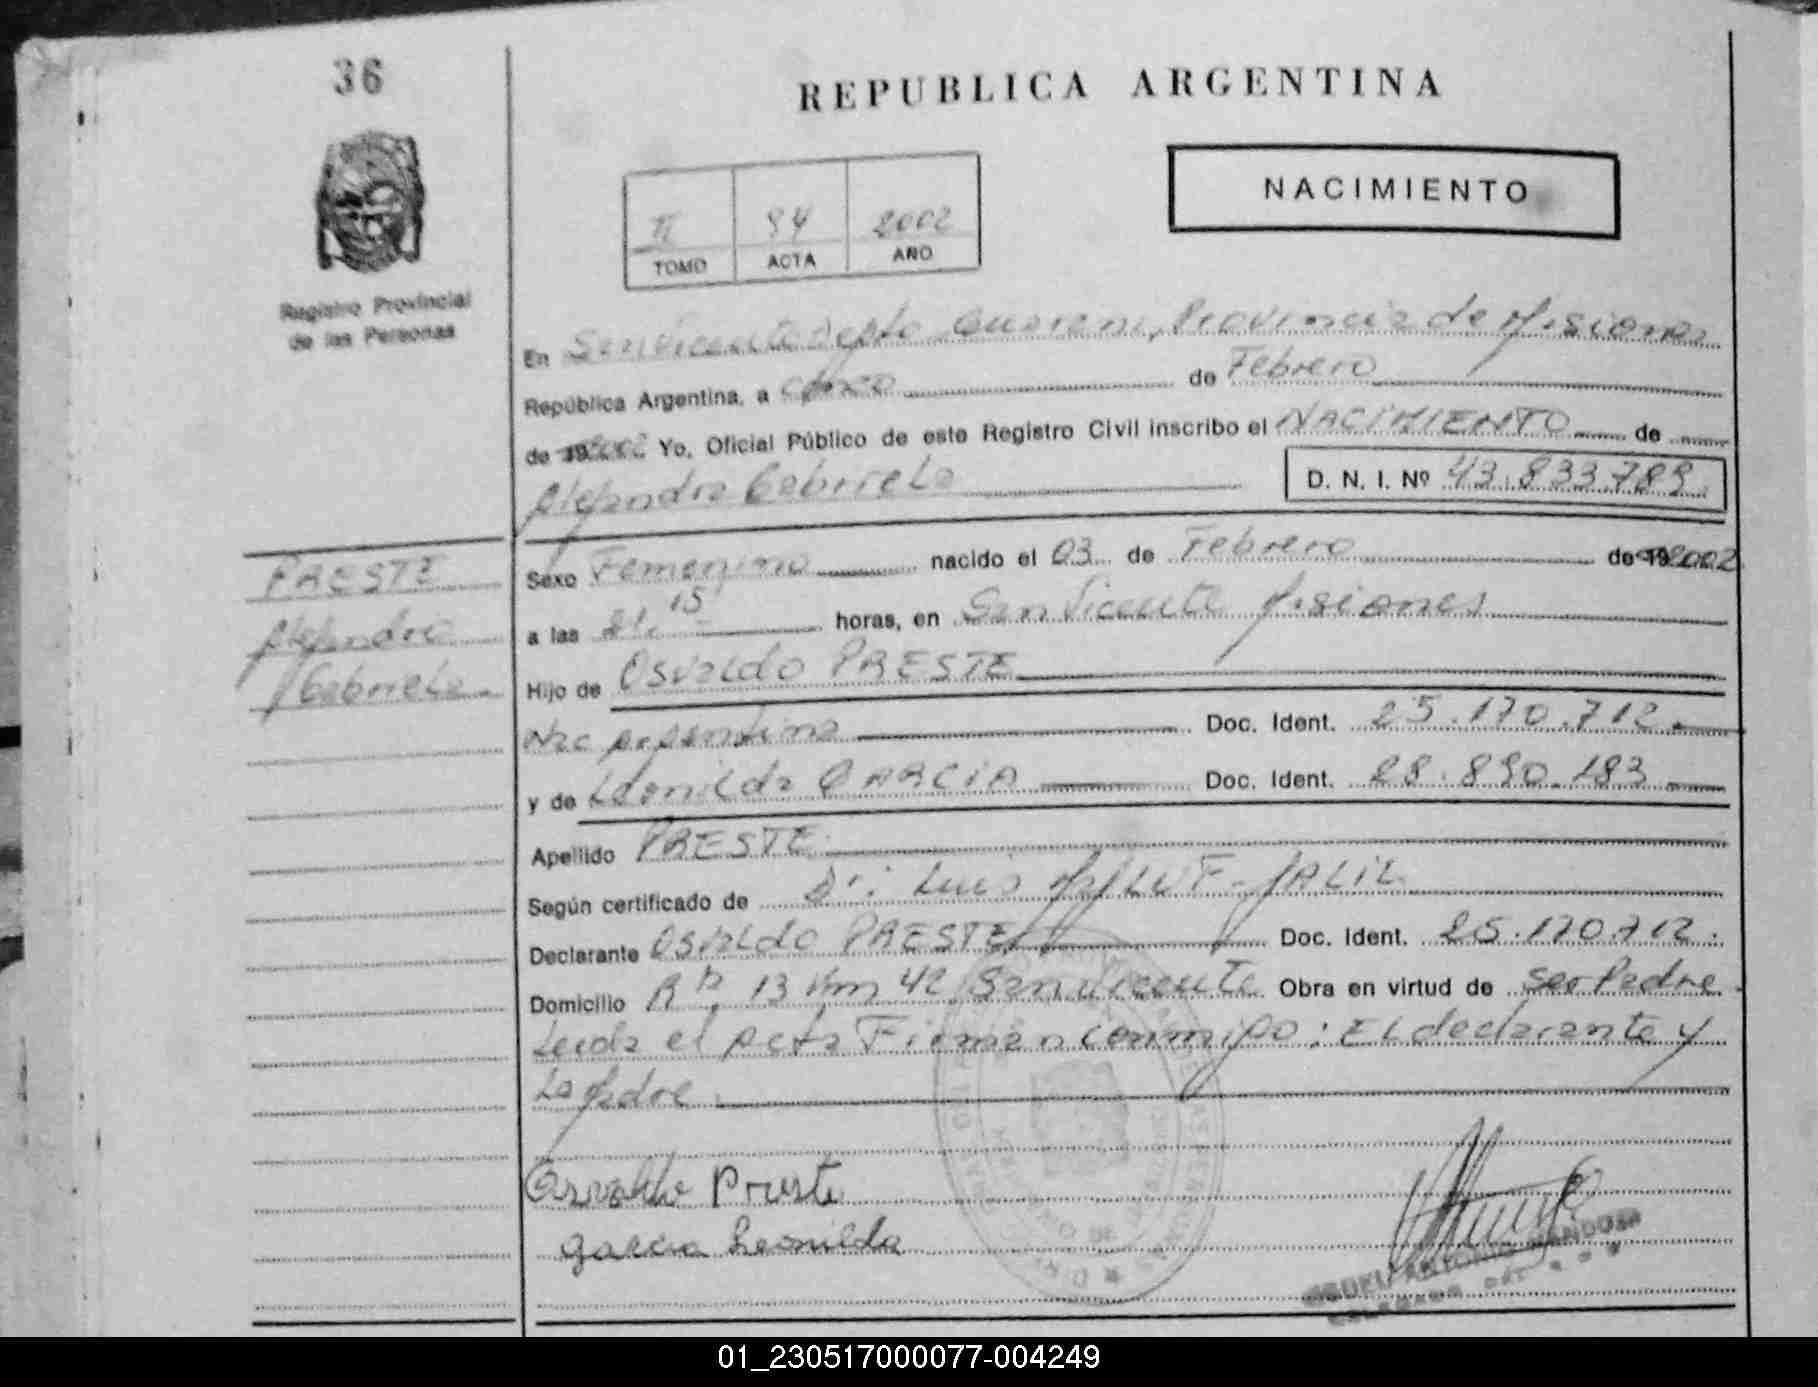 36
REPUBLICA ARGENTINA
NACIMIENTO
II 94 2002
TOMO ACTA AÑO
Registro Provincial
de las Personas
En San Vicente Depto Guarani, Provincia de Misiones
República Argentina, a cinco de Febrero
de 19 2002 Yo, Oficial Público de este Registro Civil inscribo el NACIMIENTO de
Alejandra Gabriela D. N. I. Nº 43.833.789
PRESTE
Alejandra
Gabriela
Sexo Femenino nacido el 03 de Febrero de 19 2002
a las 21.15 horas, en San Vicente Misiones
Hijo de Osvaldo PRESTE
Nac Argentina Doc. Ident. 25.170.712
y de Leonilda GARCIA Doc. Ident. 28.890.183
Apellido PRESTE
Según certificado de Dr. Luis JALIL
Declarante Osvaldo PRESTE Doc. Ident. 25.170.712
Domicilio 13 Km 42 San Vicente Obra en virtud de ser Padre
Leida el Acta Firman conmigo: El declarante y
La Madre
Osvaldo Preste
Garcia Leonilda
ANTONIO
01_230517000077-004249